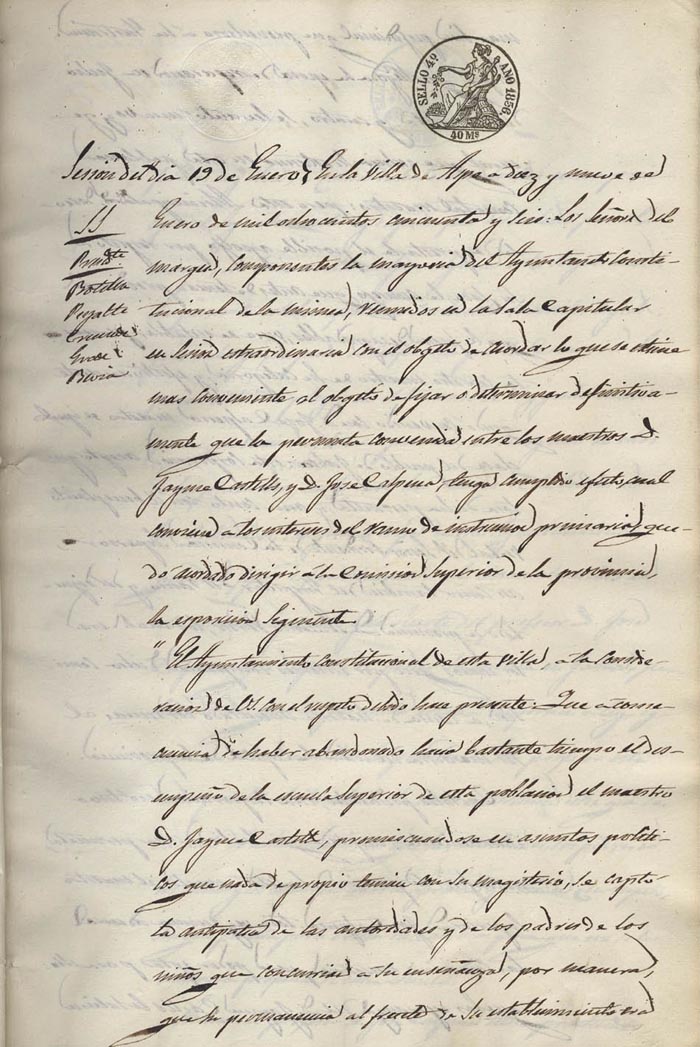 SELLO 4º AÑO 1856.
40 Ms
Sesion del dia 19 de Enero, En la Villa de Aspe a diez y nueve de
SS
Presidte
Botella
Peralta
Cremades
Gras
Enero de mil ochocientos cincuenta y seis: Los Señores del
margen, componentes la mayoria del Ayuntamto Consti-
tucional de la misma, reunidos en la Sala Capitular
en Sesion estraordinaria con el obgeto de acordar lo que se estime
mas conveniente al obgeto de fijar o determinar definitiva-
mente que la permuta convenida entre los maestros D.
Jayme Castells, y D. Jose Calpena, tenga cumplido efecto, cual
conviene a los intereses del ramo de instruccion primaria, que-
dó acordado dirigir á la Comision Superior de la provincia,
la esposicion siguiente
"El Ayuntamiento constitucional de esta Villa, a la conside-
racion de VS. con el respeto debido hace presente: Que a conse-
cuencia de haber abandonado hacia bastante tiempo el des-
empeño de la escuela Superior de esta poblacion el maestro
D. Jayme Castells, promiscuandose en asuntos politi-
cos que nada de propio tenian con su magisterio, se captó
la antipatia de las autoridades y de los padres de los
niños que concurrian a su enseñanza, por manera,
que su permanencia al frente de su establecimiento era